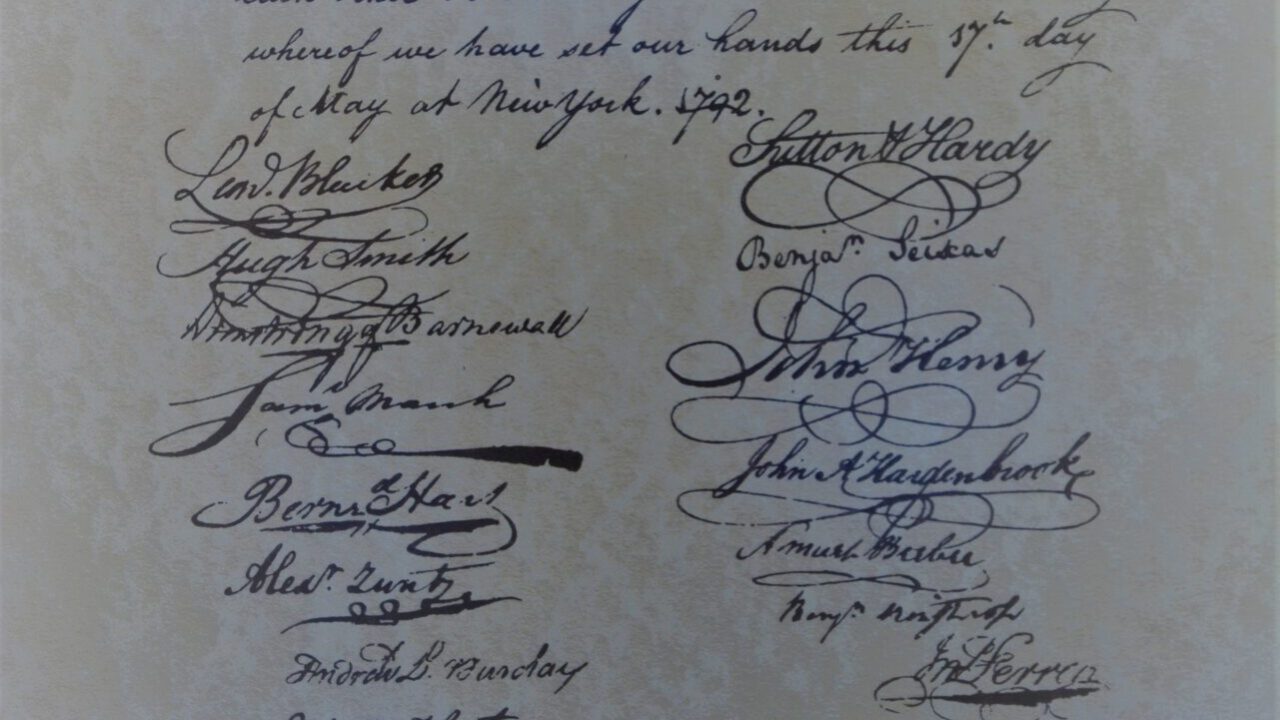 whereof we have set our hands this 17.th day
of May at New York. 1792.
Leod. Bleeker
Hugh Smith
Armstrong & Barnewall
Saml. March
Bernd. Hart
Alexr. Zuntz
Andrew D. Barclay
Sutton & Hardy
Benjam. Seixas
John Henry
John A Hardenbrook
Amuel Beebee
Benjn. Winthrop
Jno Ferrers